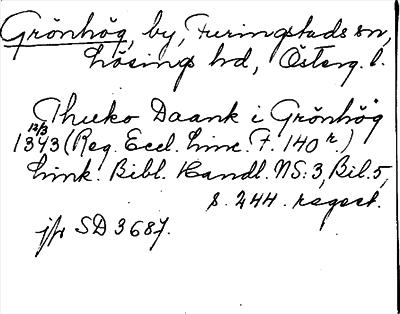 Grönhög, by, Furingstads sn,
Lösings hd, Österg. l.
Thuko Daank i Grönhög
12/3
1343 (Reg. Eccl. Linc. F. 140 r.)
Link. Bibl. Handl. NS: 3, Bil. 5,
s. 244. regest.
jfr SD 3687.